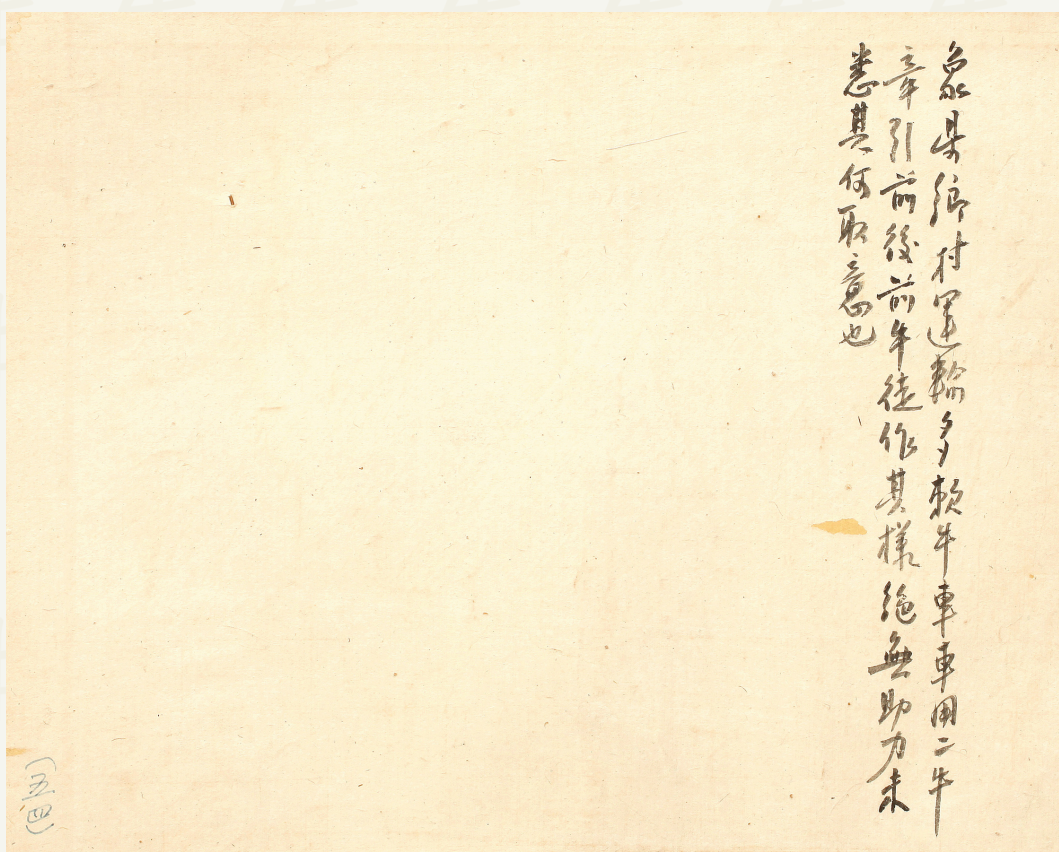 象县鄉村運輸多賴牛車車用二牛
牽引前後前牛徒作其様絶無助力未
悉其何取意也
(五四)